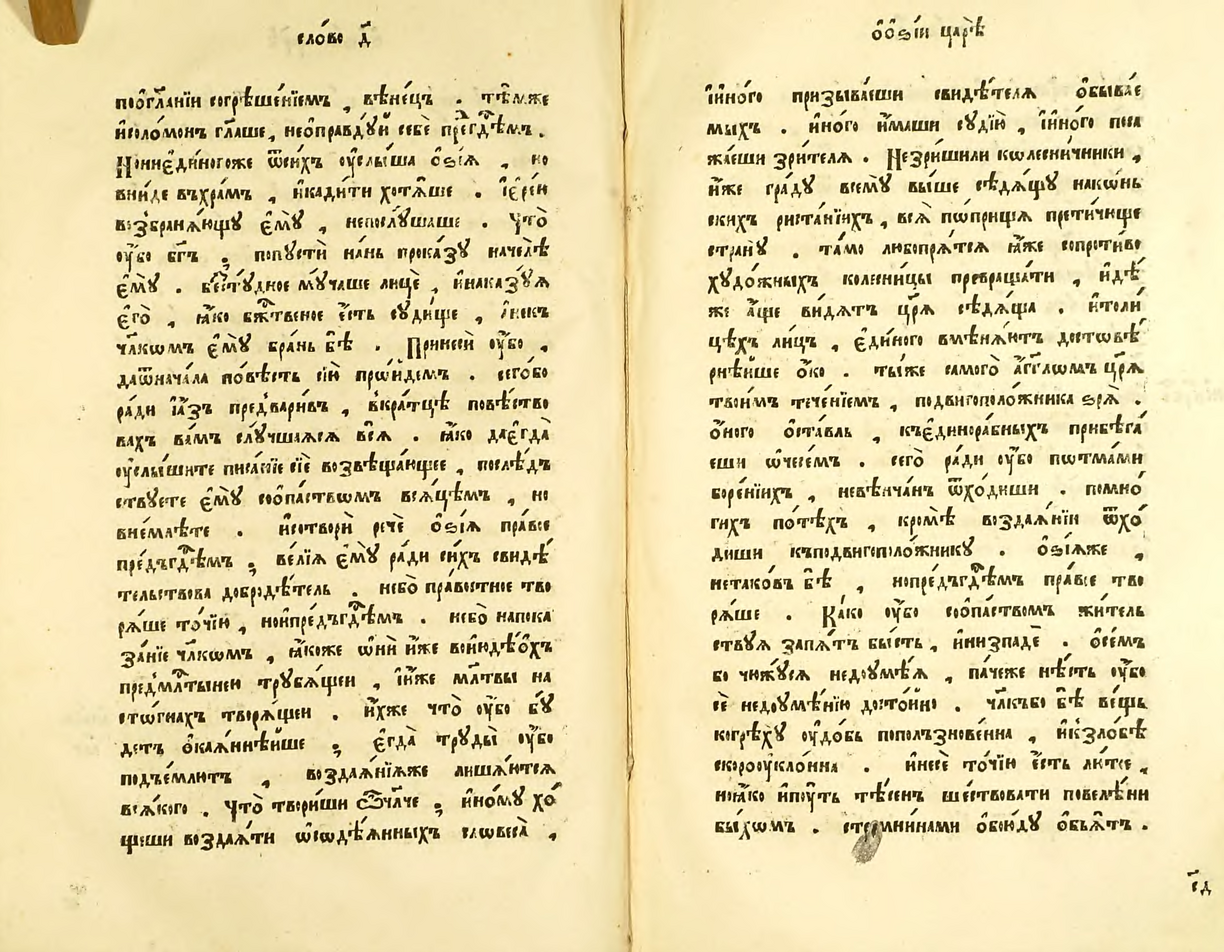 сло́во д҃
посⷧ҇анїи согрѣше́нїемъ , вѣне́цъ . тѣ́мже
и҆соломо́нъ гл҃аше , неѡправдꙋ́й себѐ пре́гдⷭ҇ѣмъ .
Нониє҆ди́ногоже ѿси́хъ ᲂу҆слы́ша ѻ҆ѕі́ѧ , но
вни́де въхра́мъ , и҆кади́ти хотѧ́ше . і҆ере́и
възбранѧ́ющꙋ є҆мꙋ̀ , непослꙋ́шаше . Что̀
ᲂу҆бо бг҃ъ ; попꙋстѝ на́нь прока́зꙋ начелѣ̀
є҆мꙋ̀ . бестꙋ́дное мꙋ́чаше лицѐ , и҆наказꙋ́ѧ
є҆го̀ , ꙗ҆́ко бж҃твеное є҆́сть сꙋди́ще , и҆некъ
чл҃кѡмъ є҆мꙋ̀ бра́нь бѣ̀ . Принеси́ ᲂу҆̀бо ,
даѿнача́ла по́вѣсть сїю̀ про́йдемъ . сего́бо
ра́ди і҆а́зъ предвари́въ , вкра́тцѣ повѣ́ство
вахъ ва́мъ слꙋ́чшаѧсѧ всѧ̀ . ꙗ҆́ко даєгда̀
ᲂу҆слы́шите писа́нїе сїѐ возвѣща́ющее , послѣ́дъ
ствꙋете є҆мꙋ̀ соѻпа́ствѡмъ всѧ́цѣмъ , но
вне́млѣте . и҆сотворѝ речѐ ѻ҆ѕі́ѧ пра́вое
пре́дъгдⷭ҇ѣмъ ; ве́лїѧ є҆мꙋ̀ ра́ди си́хъ свидѣ́
тельствова добродѣ́тель . небо̀ пра́востное тво
рѧ́ше то́чїю , нои҆пре́дъгдⷭ҇ѣмъ . небо̀ напока
за́нїе чл҃кѡмъ , ꙗ҆́коже ѡ҆ни́ и҆́же вої҆юдѣ́ѻхъ
предмл҃тынеи трꙋбѧ́щеи , і҆и҆́же мл҃твы на
сто́гнахъ творѧ́щеи . и҆́хже что̀ ᲂу҆́бо бꙋ́
детъ ѻ҆каѧ́ннѣйше ; є҆гда̀ трꙋды̀ ᲂу҆́бо
подъе́млютъ , воздаѧ́нїѧже лиша́ютсѧ
всѧ́кого . Что̀ твори́ши ѽчл҃че ; и҆но́мꙋ хо́
щеши воздаѧ́ти ѡ҆содѣ́ѧнныхъ словеса̀ ,
ѻ҆ѻ҆ѕі́и царѣ̀
і҆и҆но́го призыва́еши свидѣ́телѧ ѻ҆быва́е
мыхъ . и҆но́го и҆́маши сꙋдїю̀ , і҆и҆но́го поса
жа́еши зри́телѧ . Незри́шили колесни́чники ,
и҆́же гра́дꙋ всемꙋ̀ вы́ше сѣдѧ́щꙋ нако́нь
скихъ риста́нїихъ , всѧ̀ по́прища прети́чюще
странꙋ̀ . та́мо любопрѧ́тсѧ ꙗ҆́же сопроти́во
хꙋдо́жныхъ колесни́цы превраща́ти , и҆дѣ́
же а҆́ще ви́дѧтъ цр҃ѧ̀ сѣдѧ́ща . и҆толи́
цѣхъ ли́цъ , є҆ди́ного вмѣнѧ́ютъ достовѣ́
рнѣйше ѻ҆́ко . ты́же самого̀ а҆́гг҃лѡмъ цр҃ѧ̀
твои́мъ тече́нїемъ , подвигополо́жника ѕрѧ̀ .
ѻ҆́ного ѻ҆ста́вль , къє҆динора́бныхъ прибѣга́
еши ѻ҆чесе́мъ . сего̀ ра́ди ᲂу҆̀бо потма́ми
боре́нїихъ , невѣнча́нъ ѿхо́диши . помно́
гихъ по́тѣхъ , кромѣ̀ воздаѧ́нїи ѿхо́
диши къподвигополо́жникꙋ . ѻ҆ѕі́ѧже ,
нетако́въ бѣ̀ , нопре́дъгдⷭ҇ѣмъ пра́вое тво
рѧ́ше . Ка́ко ᲂу҆́бо соѻпа́ствомъ жи́тель
ствꙋѧ запѧ́тъ бы́сть , и҆низпадѐ . ѻ҆се́мъ
бо чюжꙋ́сѧ недоꙋмѣ́ѧ , па́чеже нѣ́сть ᲂу҆́бо
сѐ недоꙋмѣ́нїю досто́йно . чл҃къбо бѣ̀ ве́щь
когрѣхꙋ̀ ᲂу҆до́бь пополъзнове́нна , и҆кзло́бѣ
скороᲂу҆кло́нна . и҆несѐ то́чїю є҆́сть лю́тсе ,
ноꙗ҆́ко и҆пꙋ́ть тѣ́сенъ ше́ствовати повелѣ́ни
бы́хѡмъ . стремни́нами ѻ҆бою́дꙋ ѻ҆бьѧ́тъ .
є҃д